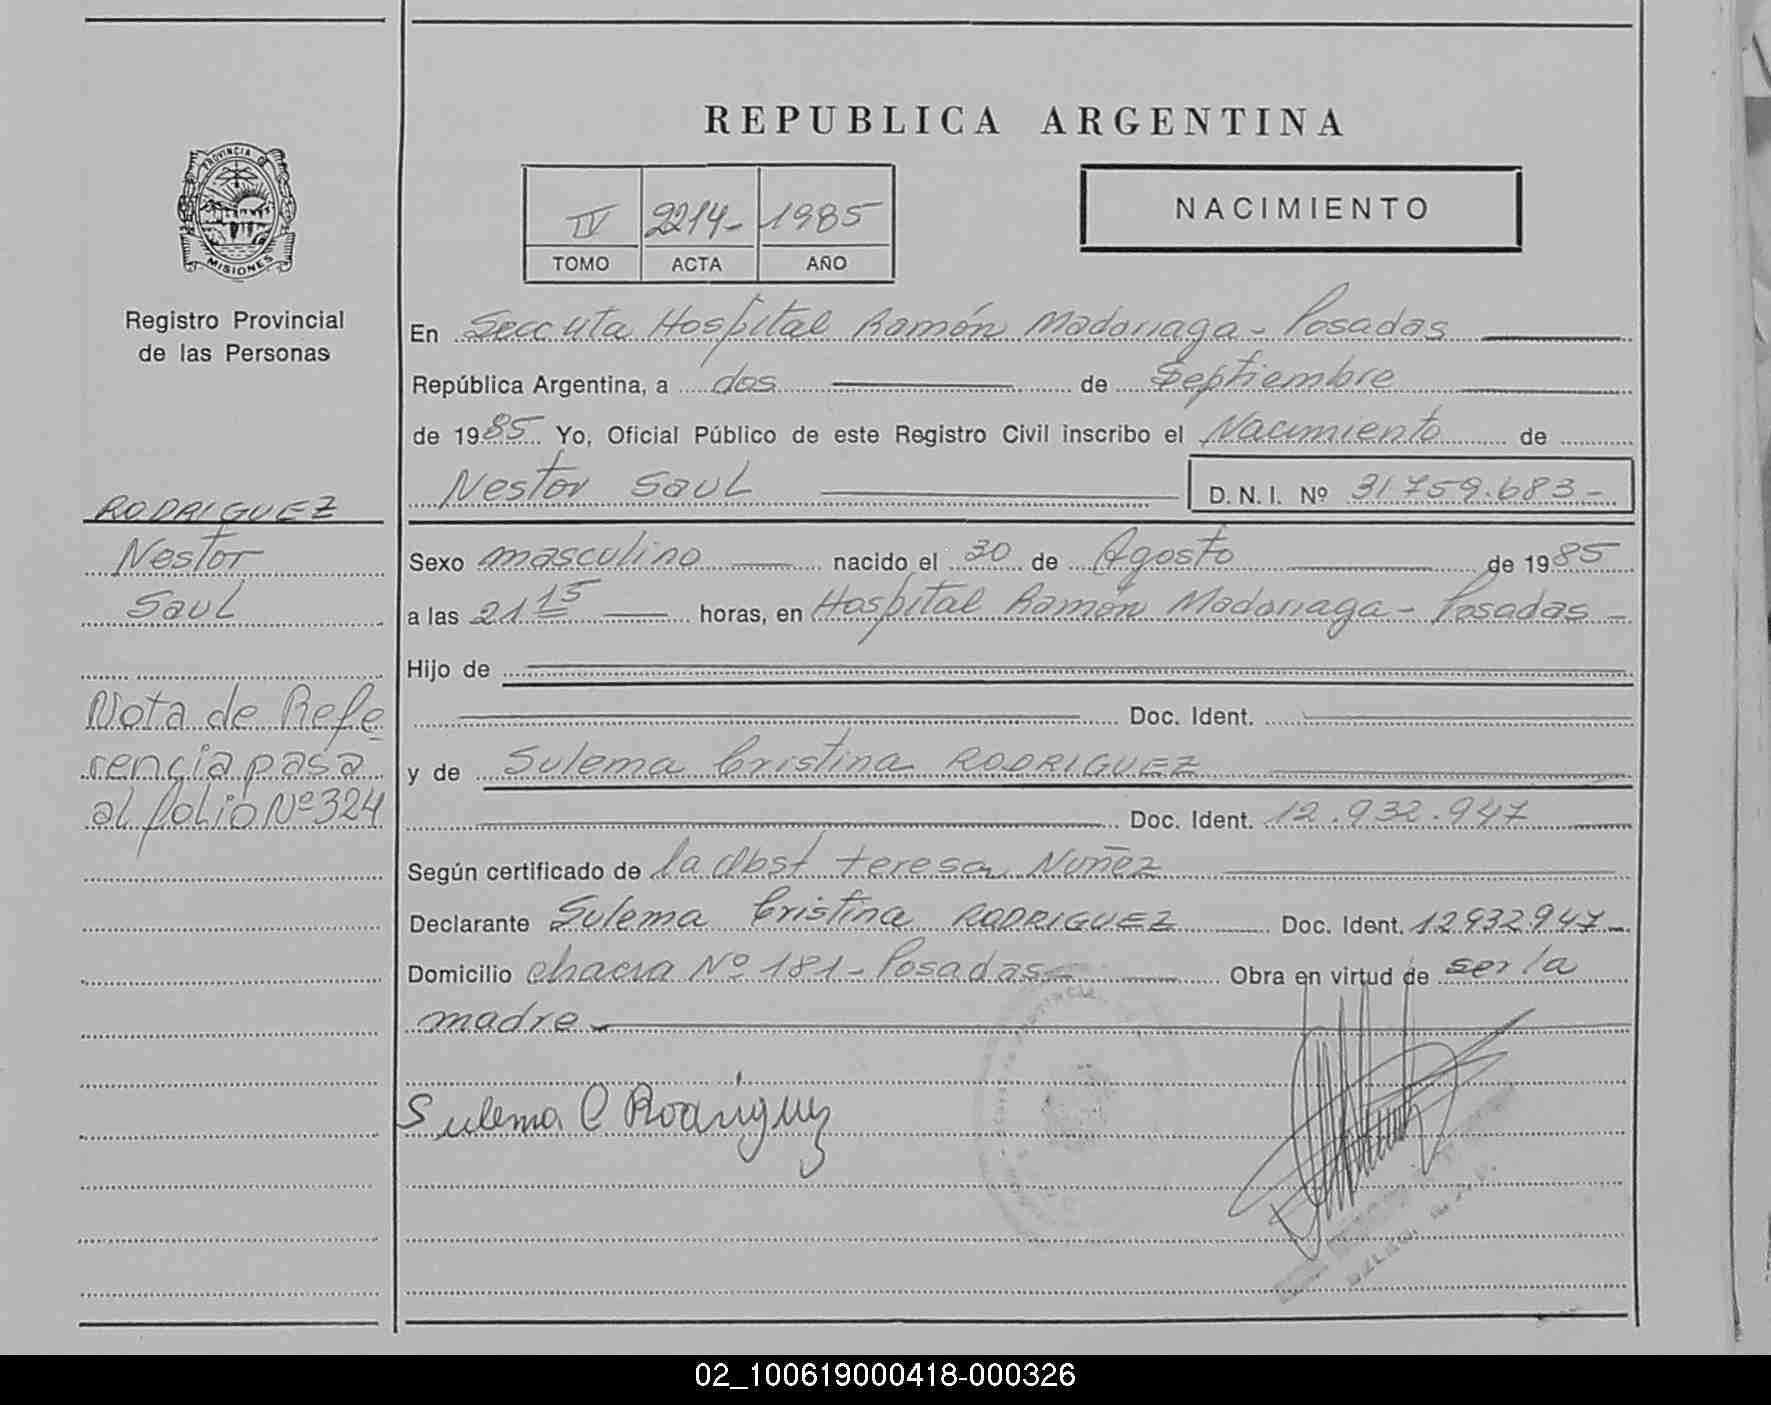 REPUBLICA ARGENTINA
PROVINCIA DE
MISIONES
Registro Provincial
de las Personas
IV 2214- 1985
TOMO ACTA AÑO
NACIMIENTO
En Secc 4ta Hospital Ramón Madariaga - Posadas
República Argentina, a dos de Septiembre
de 1985 Yo, Oficial Público de este Registro Civil inscribo el Nacimiento de
Nestor Saul D. N. I. Nº 31.759.683-
RODRIGUEZ
Nestor
Saul
Nota de Refe
rencia pasa
al folio Nº 324
Sexo masculino nacido el 30 de Agosto de 1985
a las 21 15 horas, en Hospital Ramón Madariaga - Posadas -
Hijo de
Doc. Ident.
y de Sulema Cristina RODRIGUEZ
Doc. Ident. 12.932.947
Según certificado de la Obst teresa Nuñez
Declarante Sulema Cristina RODRIGUEZ Doc. Ident. 12932947-
Domicilio chacra Nº 181 - Posadas - Obra en virtud de ser la
madre
Sulema C Rodriguez
02_100619000418-000326